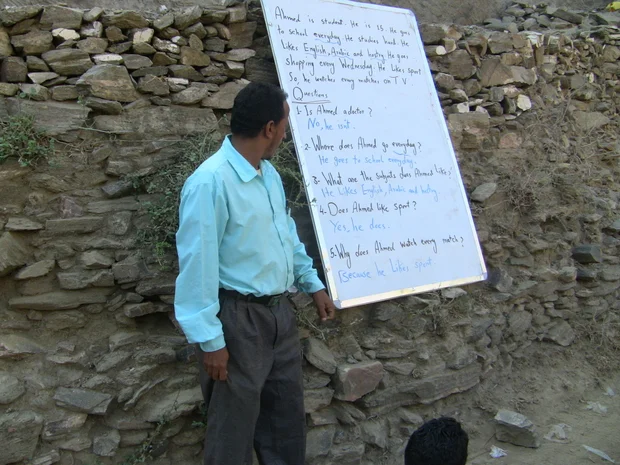 Ahmed is student. He is 15. He goes
to school everyday. He studies hard. He
likes English, Arabic and history. He goes
shopping every Wednesday. He likes sport
So, he watches every matches on TV
Questions
1- Is Ahmed a doctor?
No, he isnt.
2- Where does Ahmed go everyday?
He goes to school everyday.
3- What are the subjects does Ahmed like?
He likes English, Arabic and
4. Does Ahmed like sport?
Yes, he does.
5- Why does Ahmed watch every match?
Because he likes sport